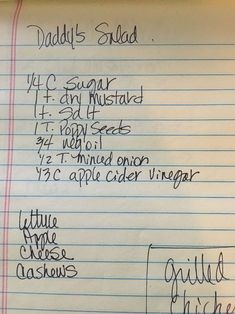 Daddy's Salad.
1/4 C Sugar
1 t. dry mustard
1 t. Salt
1 T. Poppy Seeds
3/4 veg oil
1/2 T. minced onion
1/3 C apple cider vinegar
Lettuce
Apple
Cheese
Cashews
grilled